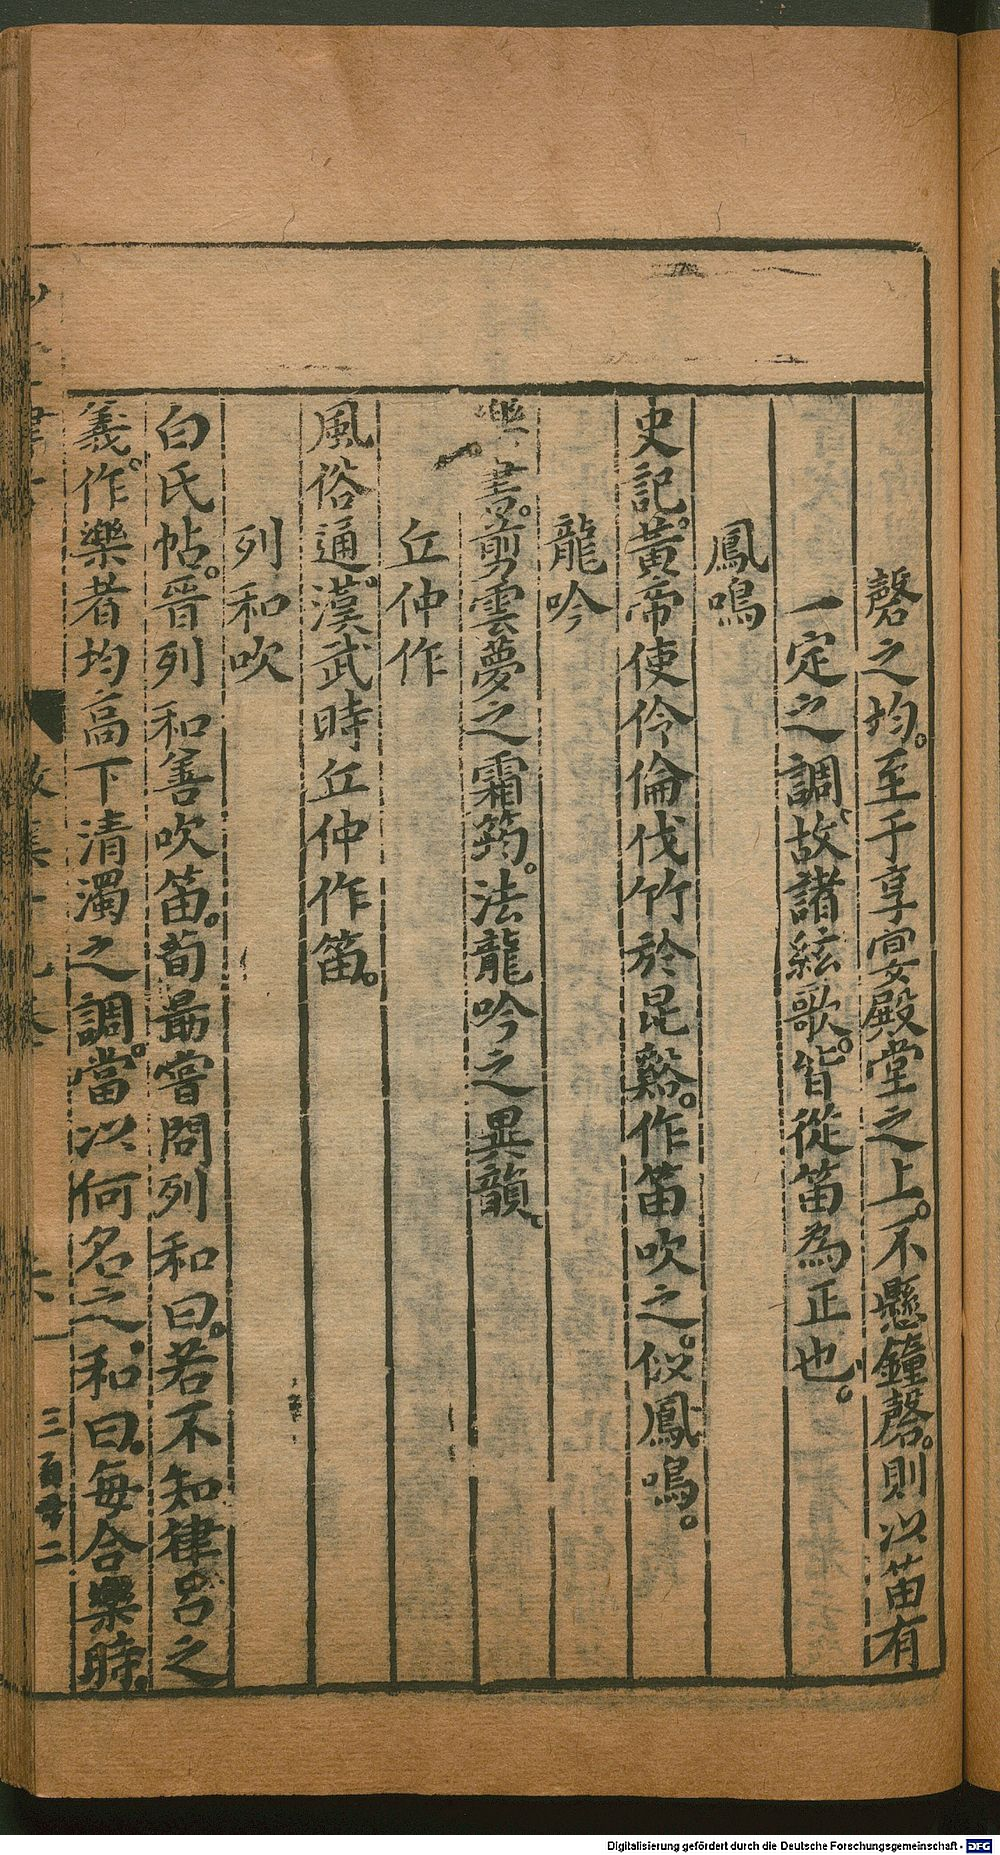 磬之均。至于享宴殿堂之上。不懸鐘磬。則以笛有
一定之調。故諸絃歌。皆從笛為正也。
鳳鳴
史記。黃帝使伶倫伐竹於昆谿。作笛吹之。似鳳鳴。
龍吟
樂書。剪雲夢之霜筠。法龍吟之異韻。
丘仲作
風俗通。漢武時丘仲作笛。
列和吹
白氏帖。晉列和善吹笛。荀勗嘗問列和曰。若不知律呂之
義。作樂者均高下清濁之調。當以何名之。和曰。每合樂時。
三百
二
Digitalisierung gefördert durch die Deutsche Forschungsgemeinschaft - DFG